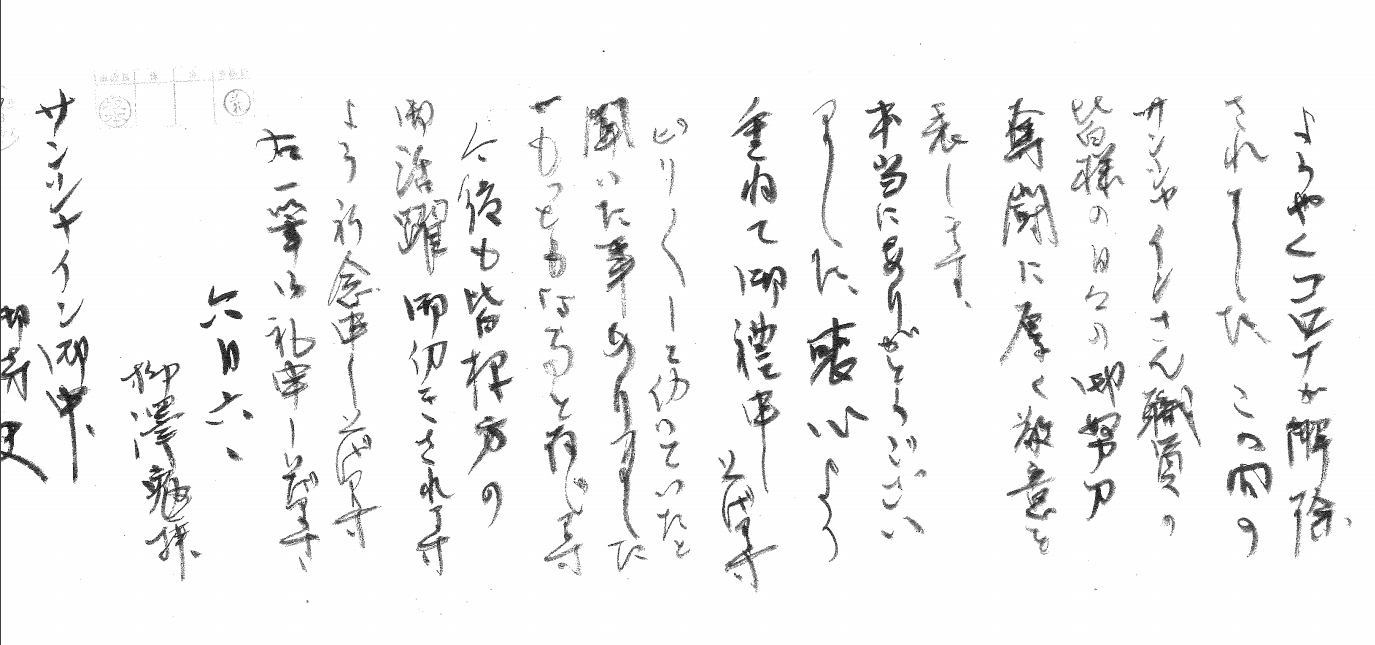 ようやくコロナが解除
されました この間の
サンシャインさん職員の
皆様の日々の御努力
奮闘に厚く敬意を
表します、
本当にありがとうござい
ました、衷心より
重ねて御禮申し上げます
ぴりぴりして働いていたと
聞いた事もありました
もっともな事と存じます
今後も皆様方の
御活躍御自愛されます
よう祈念申し上げます
右一筆御礼申し上げます、
六月六、
柳澤勉拝、
サンシャイン御中、